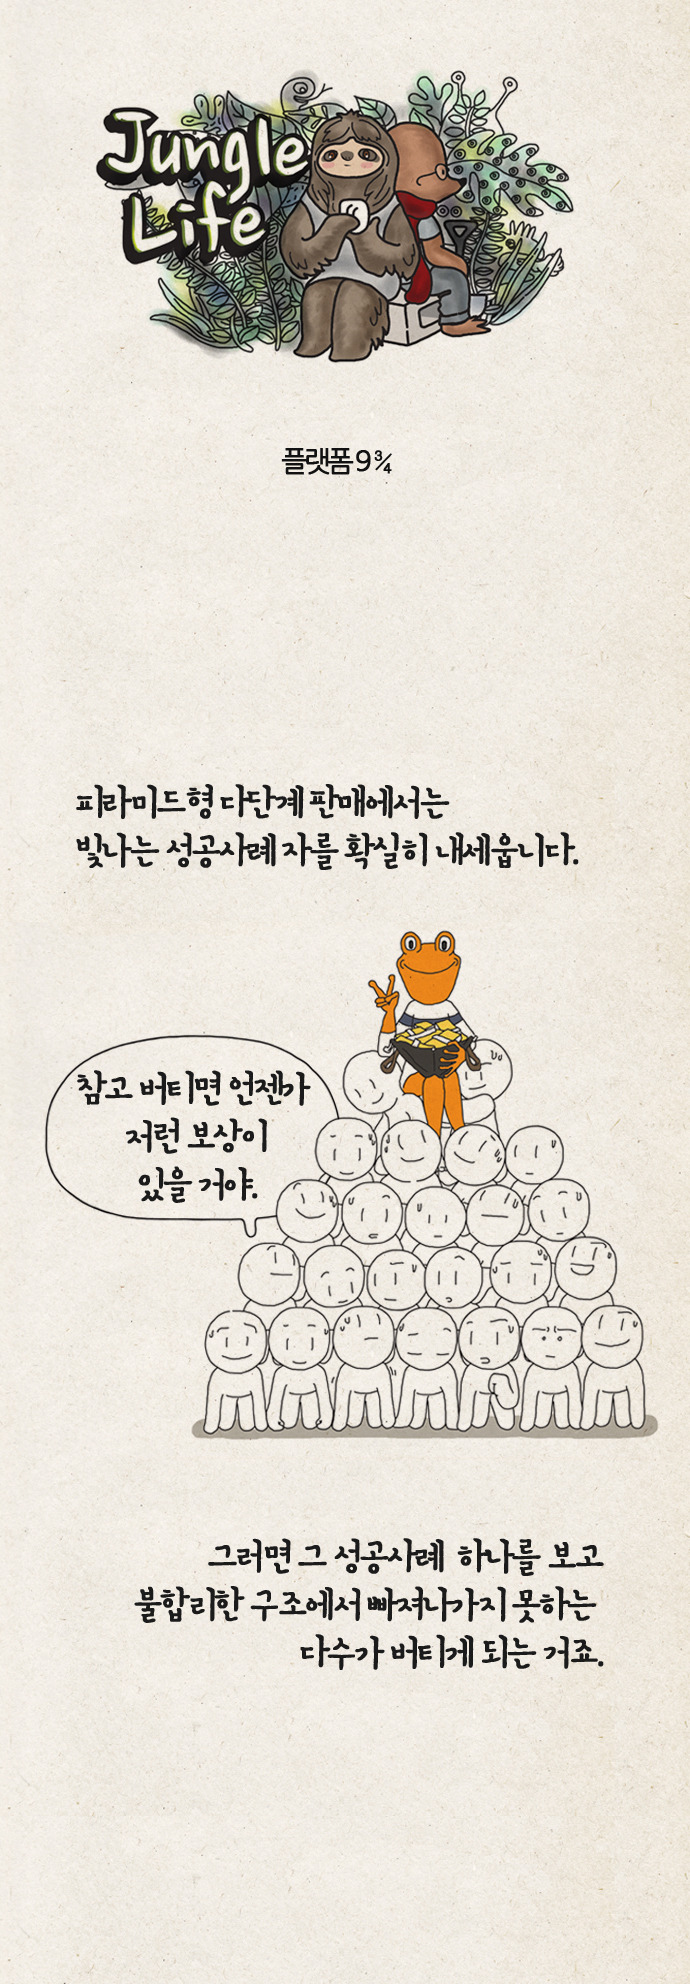 Jungle
Life
플랫폼 9¾
피라미드형 다단계 판매에서는
빛나는 성공사례 자를 확실히 내세웁니다.
참고 버티면 언젠가
저런 보상이
있을 거야.
그러면 그 성공사례 하나를 보고
불합리한 구조에서 빠져나가지 못하는
다수가 버티게 되는 거죠.